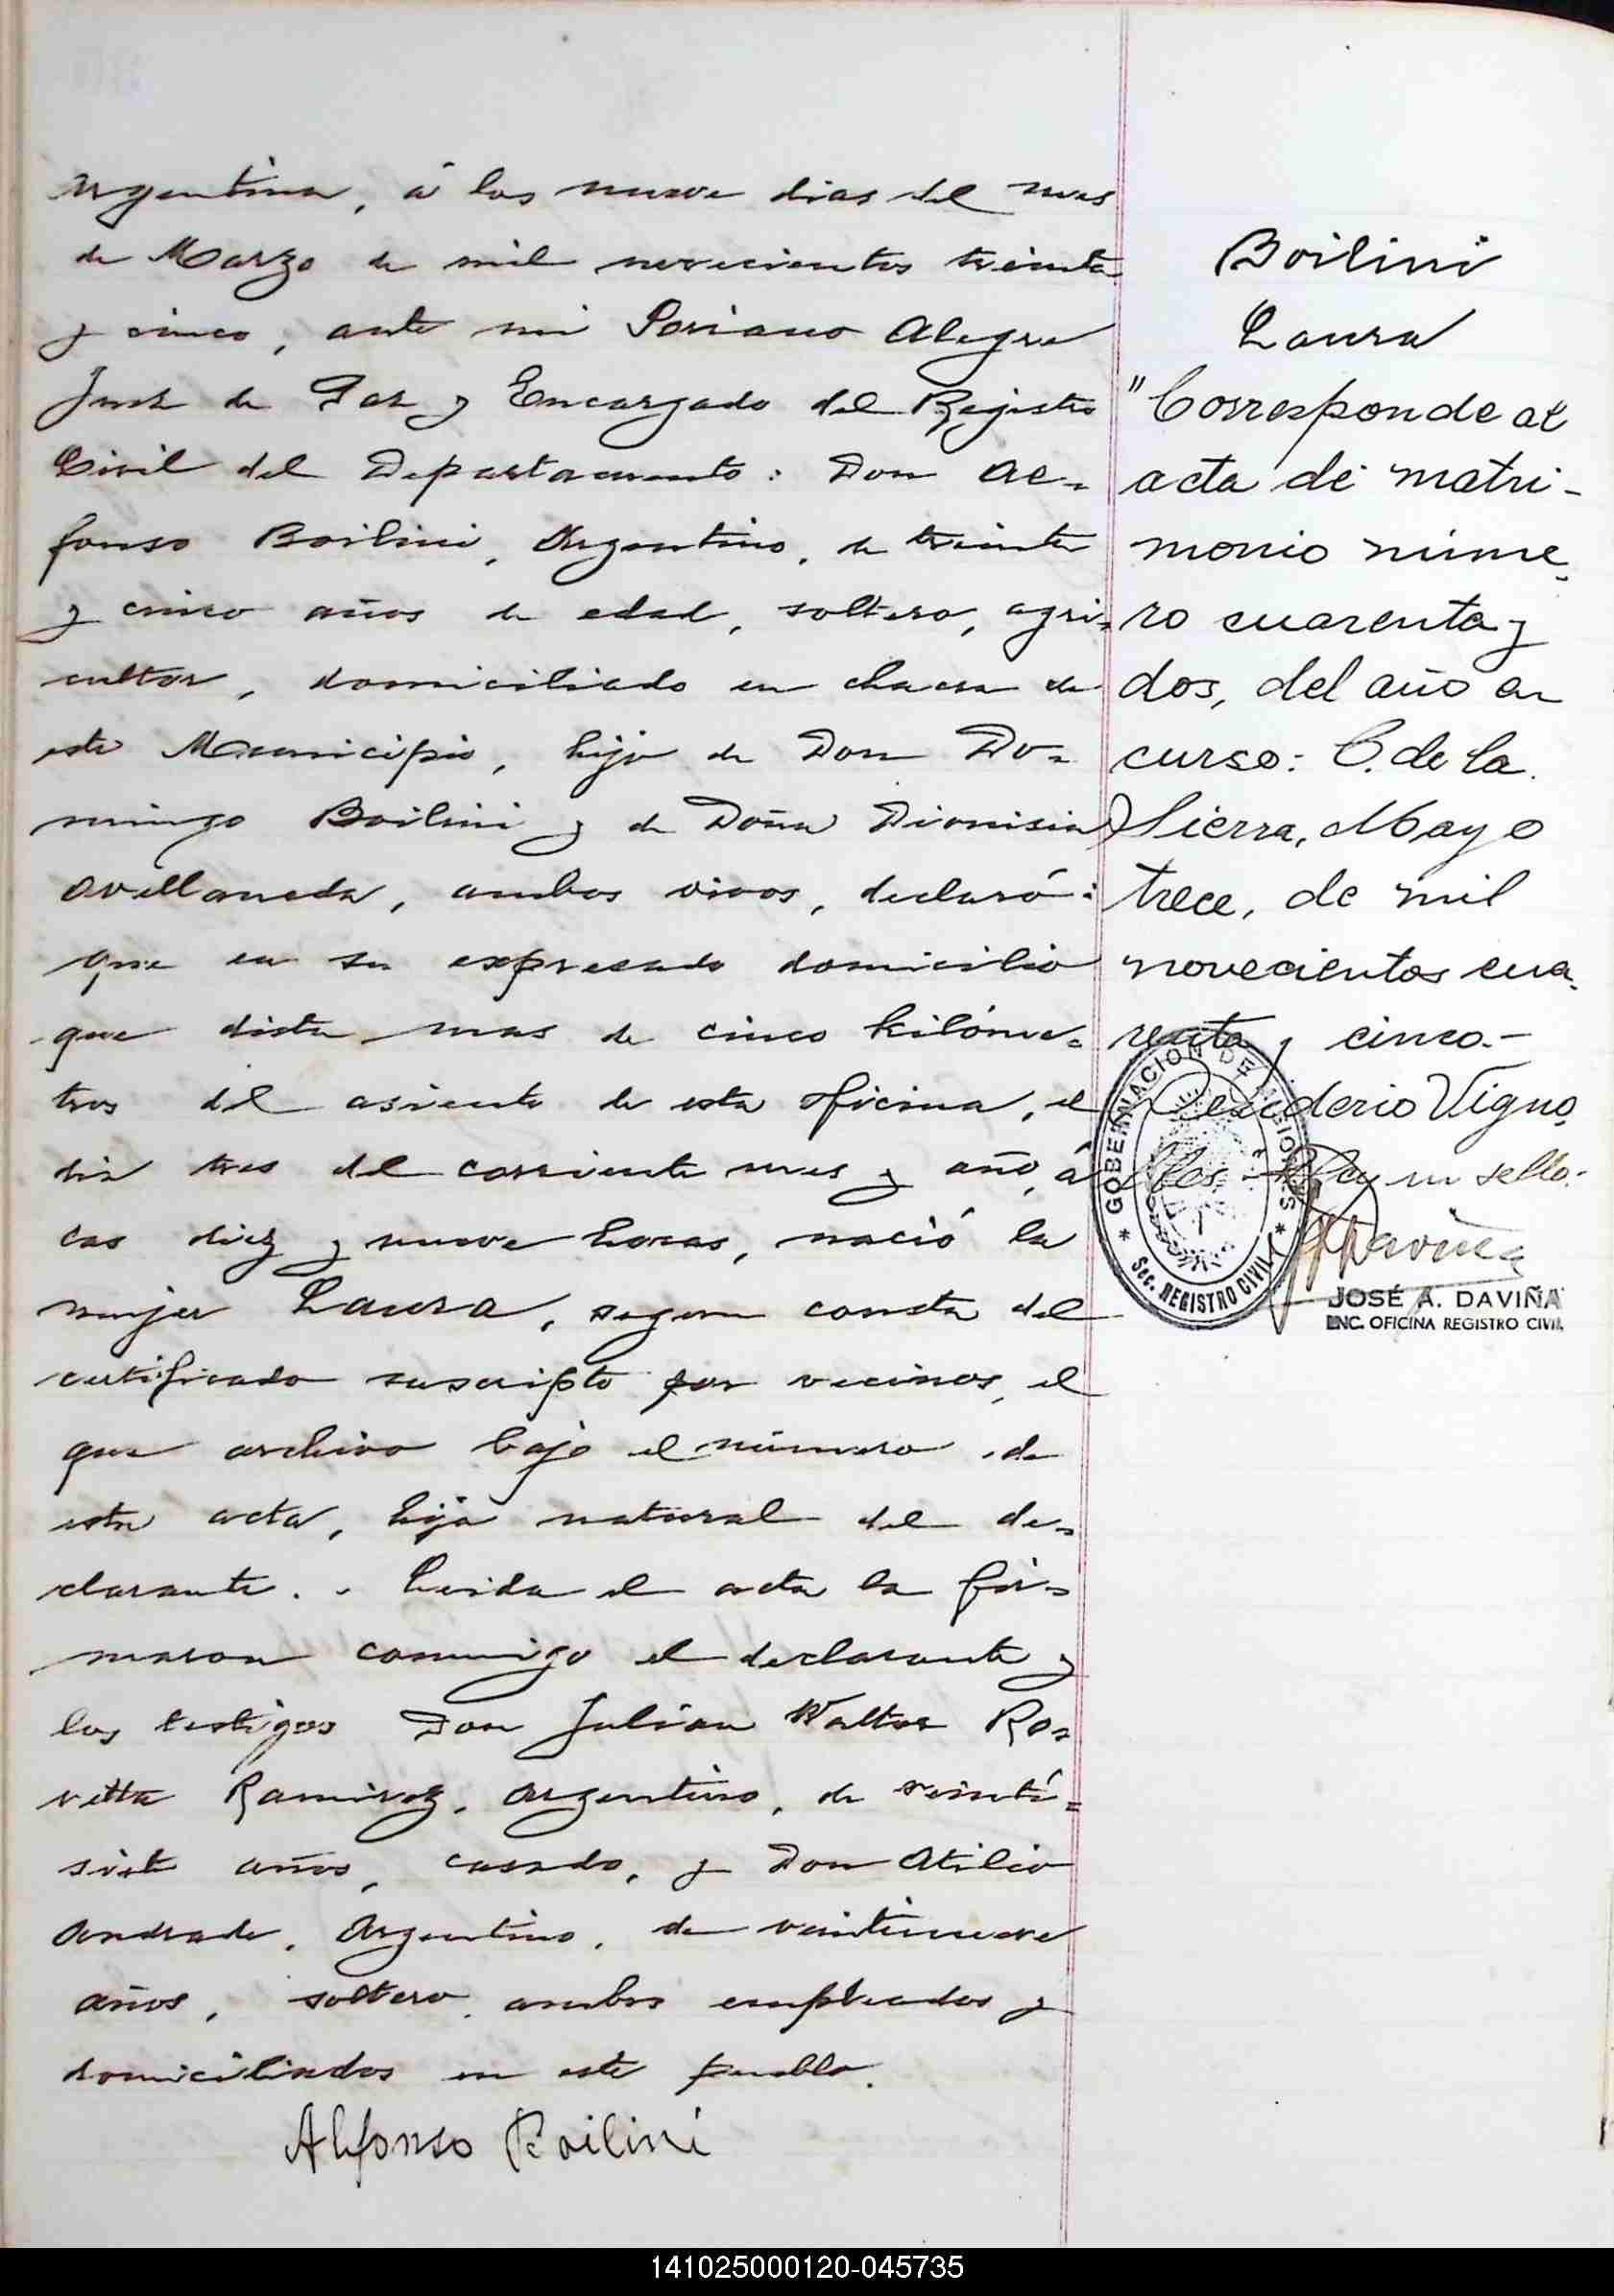 Argentina, á los nueve dias del mes
de Marzo de mil novecientos treinta
y cinco, ante mi Soriano Alegre
Juez de Paz y Encargado del Registro
Civil del Departamento: Don Al=
fonso Boilini, Argentino, de treinta
y cinco años de edad, soltero, agri=
cultor, domiciliado en chacra de
este Municipio, hijo de Don Do=
mingo Boilini y de Doña Dionisia
Avellaneda, ambos vivos, declaró:
que en su expresado domicilio
que dista mas de cinco kilóme=
tros del asiento de esta oficina, el
dia tres del corriente mes y año, á
las diez y nueve horas, nació la
mujer Laura, segun consta del
certificado suscripto por vecinos, el
que archivo bajo el número de
esta acta, hija natural del de=
clarante. - Leida el acta la fir=
maron conmigo el declarante y
los testigos Don Julian Walter Ro=
vetta Ramirez, argentino, de veinti=
siete años, casado, y Don Atilio
Andrade, Argentino, de veintinueve
años, soltero, ambos empleados y
domiciliados en este pueblo.
Alfonso Boilini
Boilini
Laura
"Corresponde al
acta de matri-
monio núme-
ro cuarenta y
dos, del año en
curso: C. de la
Sierra, Mayo
trece, de mil
novecientos cua-
renta y cinco.-
Desiderio Vigno-
les - Hay un sello.-
GOBERNACION DE MISIONES
* Sec. REGISTRO CIVIL *
JOSÉ A. DAVIÑA
ENC. OFICINA REGISTRO CIVIL
141025000120-045735